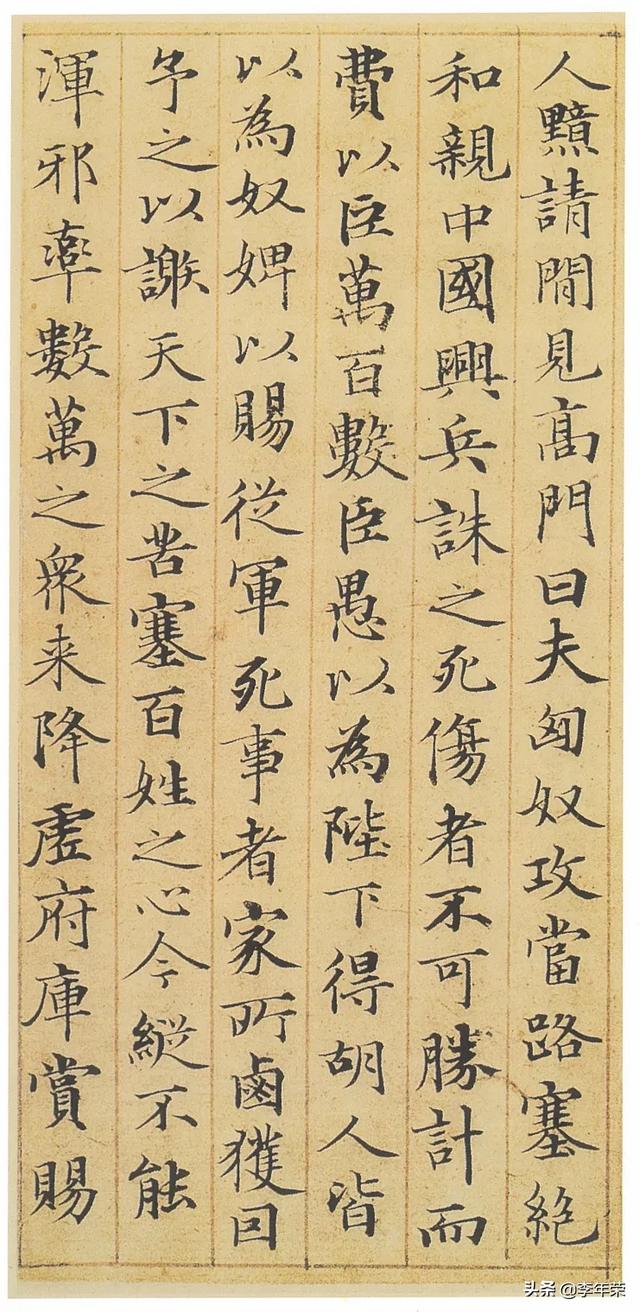 人黯請間見高門曰夫匈奴攻當路塞絶
和親中國興兵誅之死傷者不可勝計而
費以巨萬百數臣愚以為陛下得胡人皆
以為奴婢以賜從軍死事者家所鹵獲因
予之以謝天下之苦塞百姓之心今縱不能
渾邪率數萬之衆来降虚府庫賞賜
头条 @李年荣